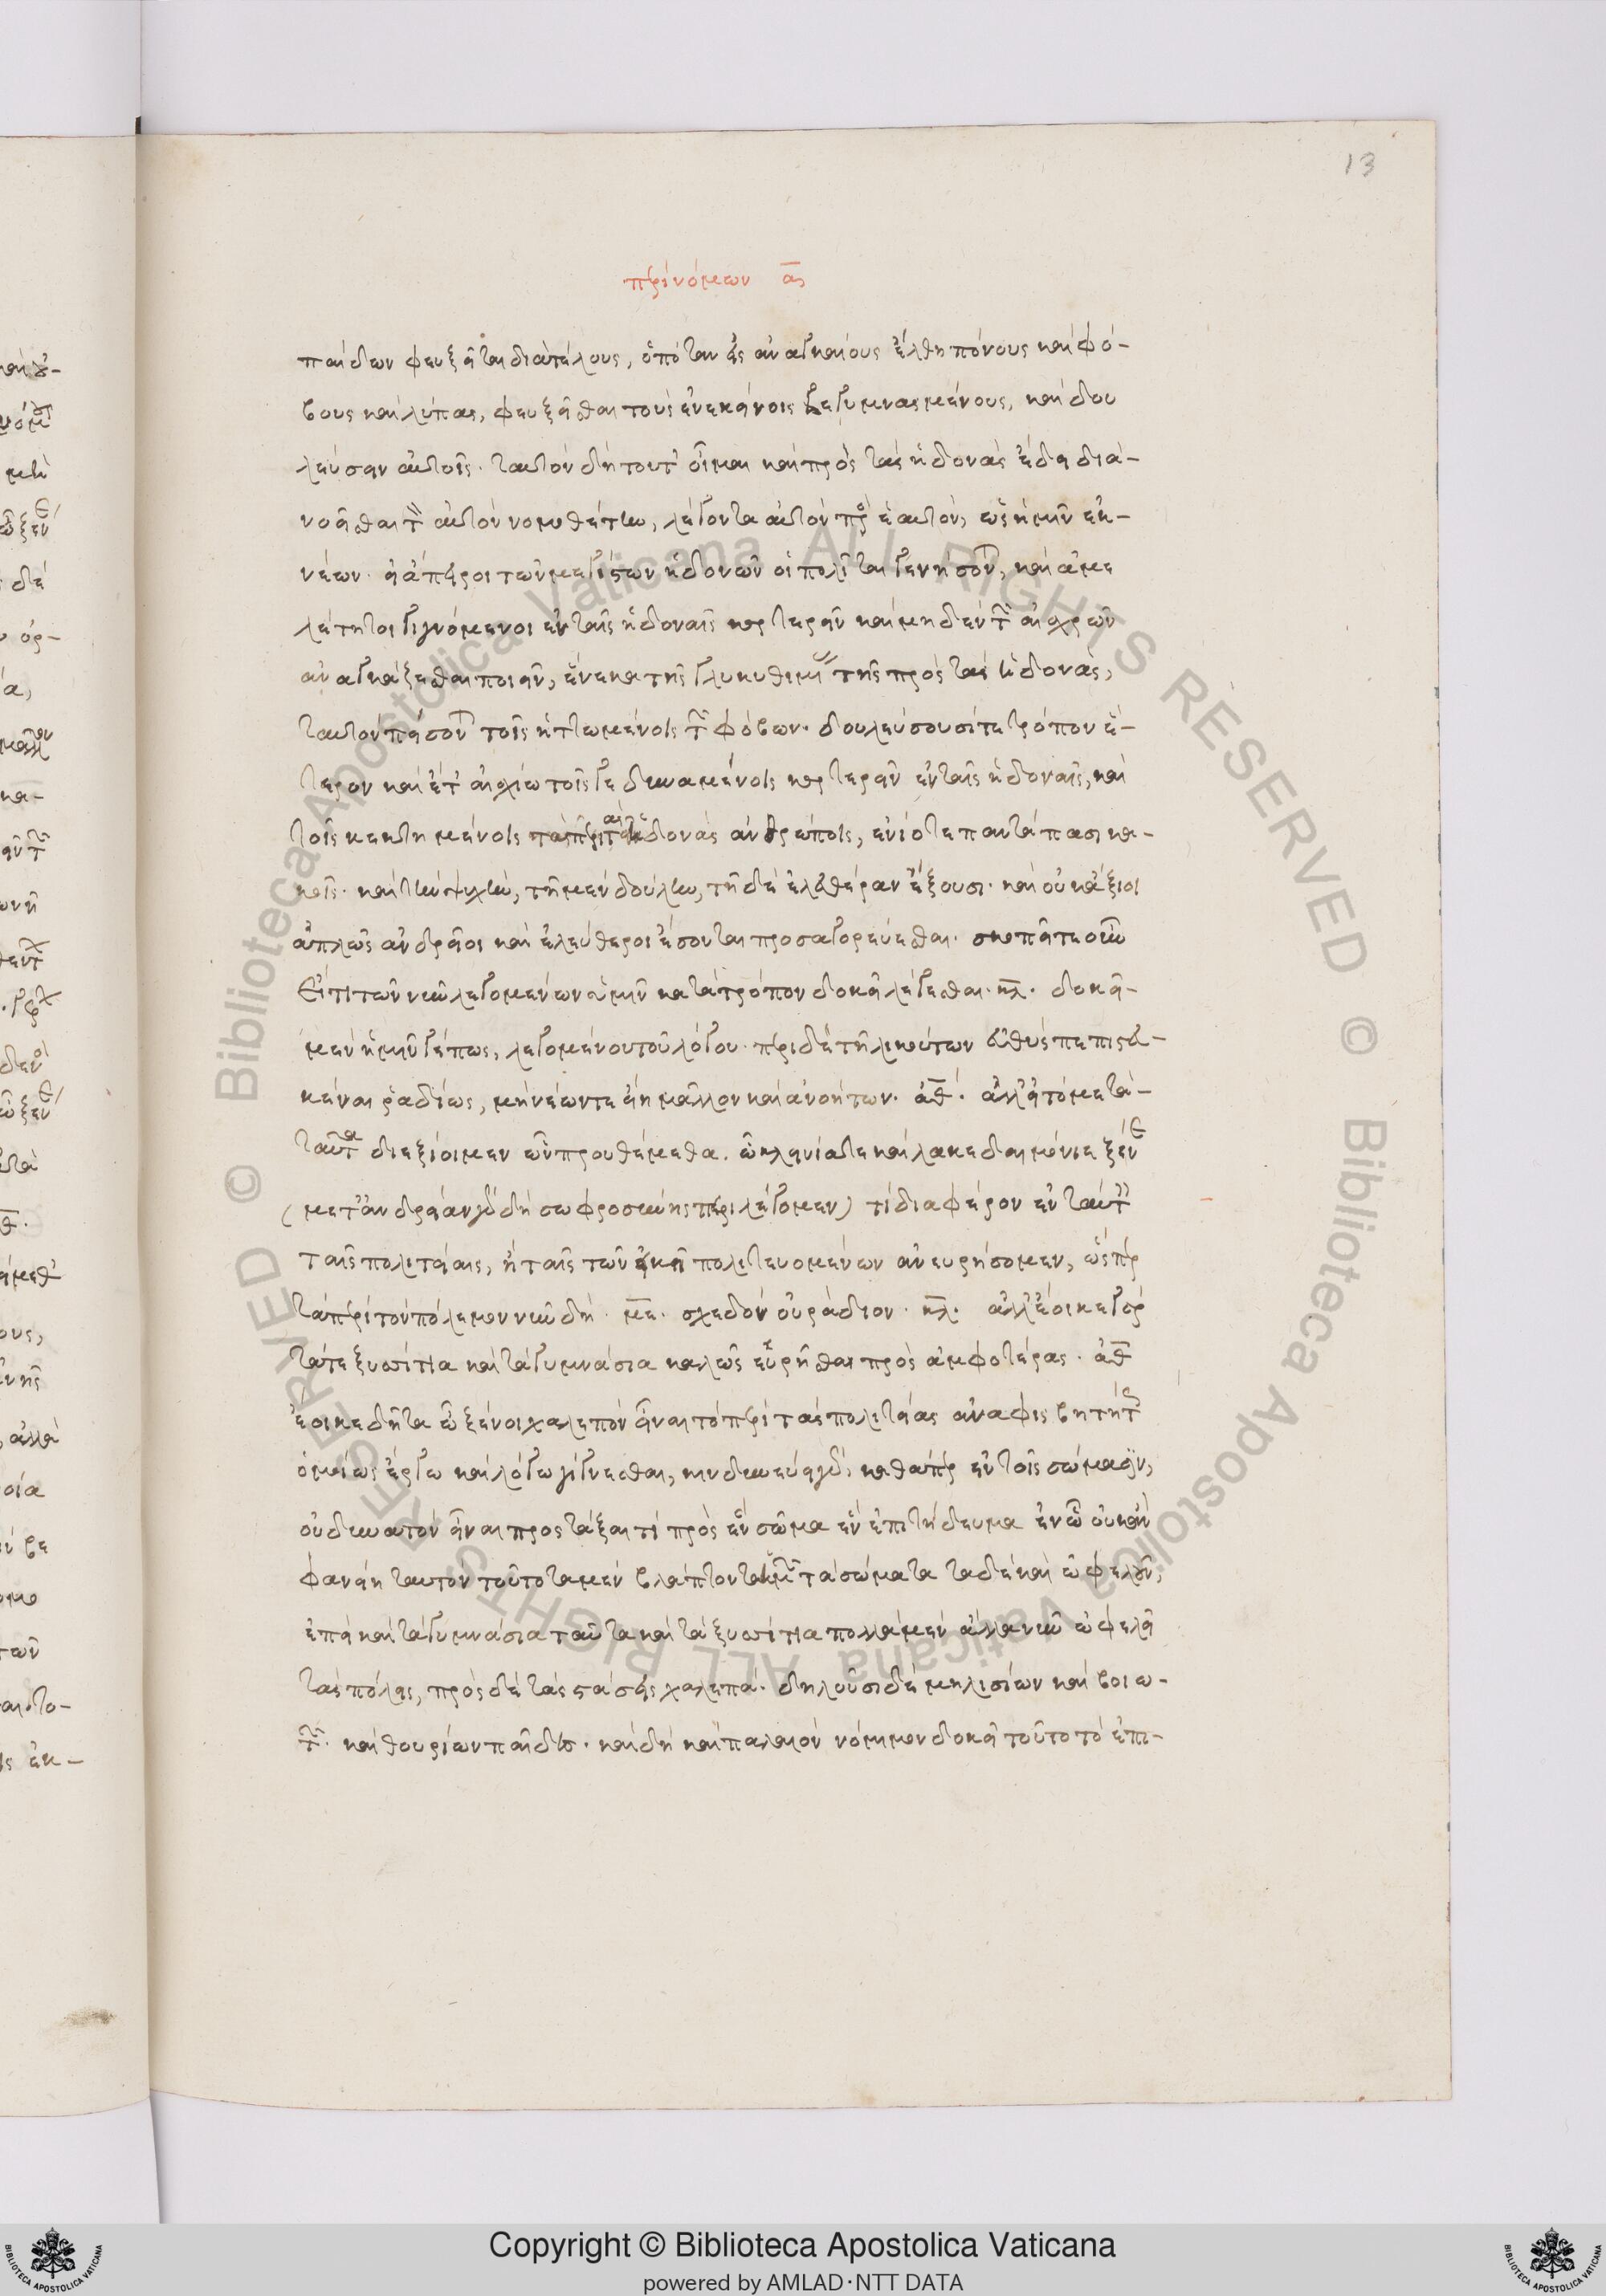 13
περὶ νόμων ας
παίδων φευξεῖται διὰ τέλους, ὁπόταν εἰς ἀναγκαίους ἔλθῃ πόνους καὶ φό-
βους καὶ λύπας, φευξεῖσθαι τοὺς ἐν ἐκείνοις γεγυμνασμένους, καὶ δου
λεύσειν αὐτοῖς. ταυτὸν δὴ τοῦτ' οἶμαι καὶ πρὸς τὰς ἡδονὰς ἔδει δια-
νοεῖσθαι τὸν αὐτὸν νομοθέτην, λέγοντα αὐτὸν πρὸς ἑαυτὸν, ὡς ἡμῖν ἐκ-
νέων εἰ ἄπειροι τῶν μεγίστων ἡδονῶν οἱ πολῖται γενήσονται, καὶ ἀμε
λέτητοι γιγνόμενοι ἐν ταῖς ἡδοναῖς καρτερεῖν καὶ μηδὲν τῶν αἰσχρῶν
ἀναγκάζεσθαι ποιεῖν, ἕνεκα τῆς γλυκυθυμίας τῆς πρὸς τὰς ἡδονὰς,
ταυτὸν πείσονται τοῖς ἡττωμένοις τῶν φόβων. δουλεύσουσί τε τρόπον ἕ-
τερον καὶ ἔτ' αἰσχίω τοῖς γε δυναμένοις καρτερεῖν ἐν ταῖς ἡδοναῖς, καὶ
τοῖς κεκτημένοις τὰ περὶ τὰς ἡδονὰς ἀνθρώποις, ἐνίοτε παντάπασι κα-
κοῖς. καὶ τὴν ψυχὴν, τῇ μὲν δούλην, τῇ δὲ ἐλευθέραν ἕξουσι. καὶ οὐκ ἄξιοι
ἁπλῶς ἀνδρεῖοι καὶ ἐλεύθεροι ἔσονται προσαγορεύεσθαι. σκοπεῖτε οὖν
εἴ τι τῶν νῦν λεγομένων ὑμῖν κατὰ τρόπον δοκεῖ λέγεσθαι. κλ. δοκεῖ-
μὲν ἡμῖν γέ πως, λεγομένου τοῦ λόγου. περὶ δὲ τηλικούτων εὐθὺς πεπιστευ-
κέναι ῥᾳδίως, μὴ νέων τε εἴη μᾶλλον καὶ ἀνοήτων. ἀθ. ἀλλ' εἰ τὸ μετὰ-
ταῦτα διεξίοιμεν ὧν προυθέμεθα. ὦ κλεινία τε καὶ λακεδαιμόνιε ξένε
(μετ' ἀνδρείαν γὰρ δὴ σωφροσύνης πέρι λέγομεν) τί διαφέρον ἐν ταύταις
ταῖς πολιτείαις, ἢ ταῖς τῶν εἰκῇ πολιτευομένων ἀνευρήσομεν, ὥσπερ
τὰ περὶ τὸν πόλεμον νῦν δή. με. σχεδὸν οὐ ῥάδιον. κλ. ἀλλ' ἔοικε γὰρ
τά τε ξυσσίτια καὶ τὰ γυμνάσια καλῶς εὑρῆσθαι πρὸς ἀμφοτέρας. ἀθ
ἔοικε δῆτα ὦ ξένοι χαλεπὸν εἶναι τὸ περὶ τὰς πολιτείας ἀναφισβητήτως
ὁμοίως ἔργω καὶ λόγω γίγνεσθαι, κινδυνεύει γὰρ, καθάπερ ἐν τοῖς σώμασιν,
οὐ δυνατὸν εἶναι προστάξαι τὶ πρὸς ἓν σῶμα ἓν ἐπιτήδευμα ἐν ὧ οὐκ ἂν
φανείη ταυτὸν τοῦτο τὰ μὲν βλάπτον τὰ ἡμῶν τὰ σώματα τὰ δὲ καὶ ὠφελοῦν,
ἐπεὶ καὶ τὰ γυμνάσια ταῦτα καὶ τὰ ξυσσίτια πολλὰ μὲν ἄλλα νῦν ὠφελεῖ
τὰς πόλεις, πρὸς δὲ τὰς στάσεις χαλεπά. δηλοῦσι δὲ μηλισίων καὶ βοιω-
τῶν. καὶ θουρίων παῖδες. καὶ δὴ καὶ παλαιὸν νόμιμον δοκεῖ τοῦτο τὸ ἐπι-
Copyright © Biblioteca Apostolica Vaticana
powered by AMLAD·NTT DATA